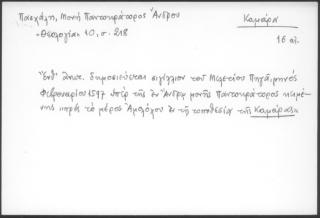 Πασχάλη, Μονή Παντοκράτορος Άνδρου
Καμάρα
«Θεολογία» 10, σ. 218
16 αἰ.
Ἔνθ' ἀνωτ. δημοσιεύεται σιγίλλιον τοῦ Μελετίου Πηγᾶ, μηνός
Φεβρουαρίου 1597 ὑπέρ τῆς ἐν Ἄνδρῳ μονῆς Παντοκράτορος κειμέ-
νης πρός τό μέρος Ἀμολόχου ἐν τῇ τοποθεσίᾳ τῆς Καμάρας